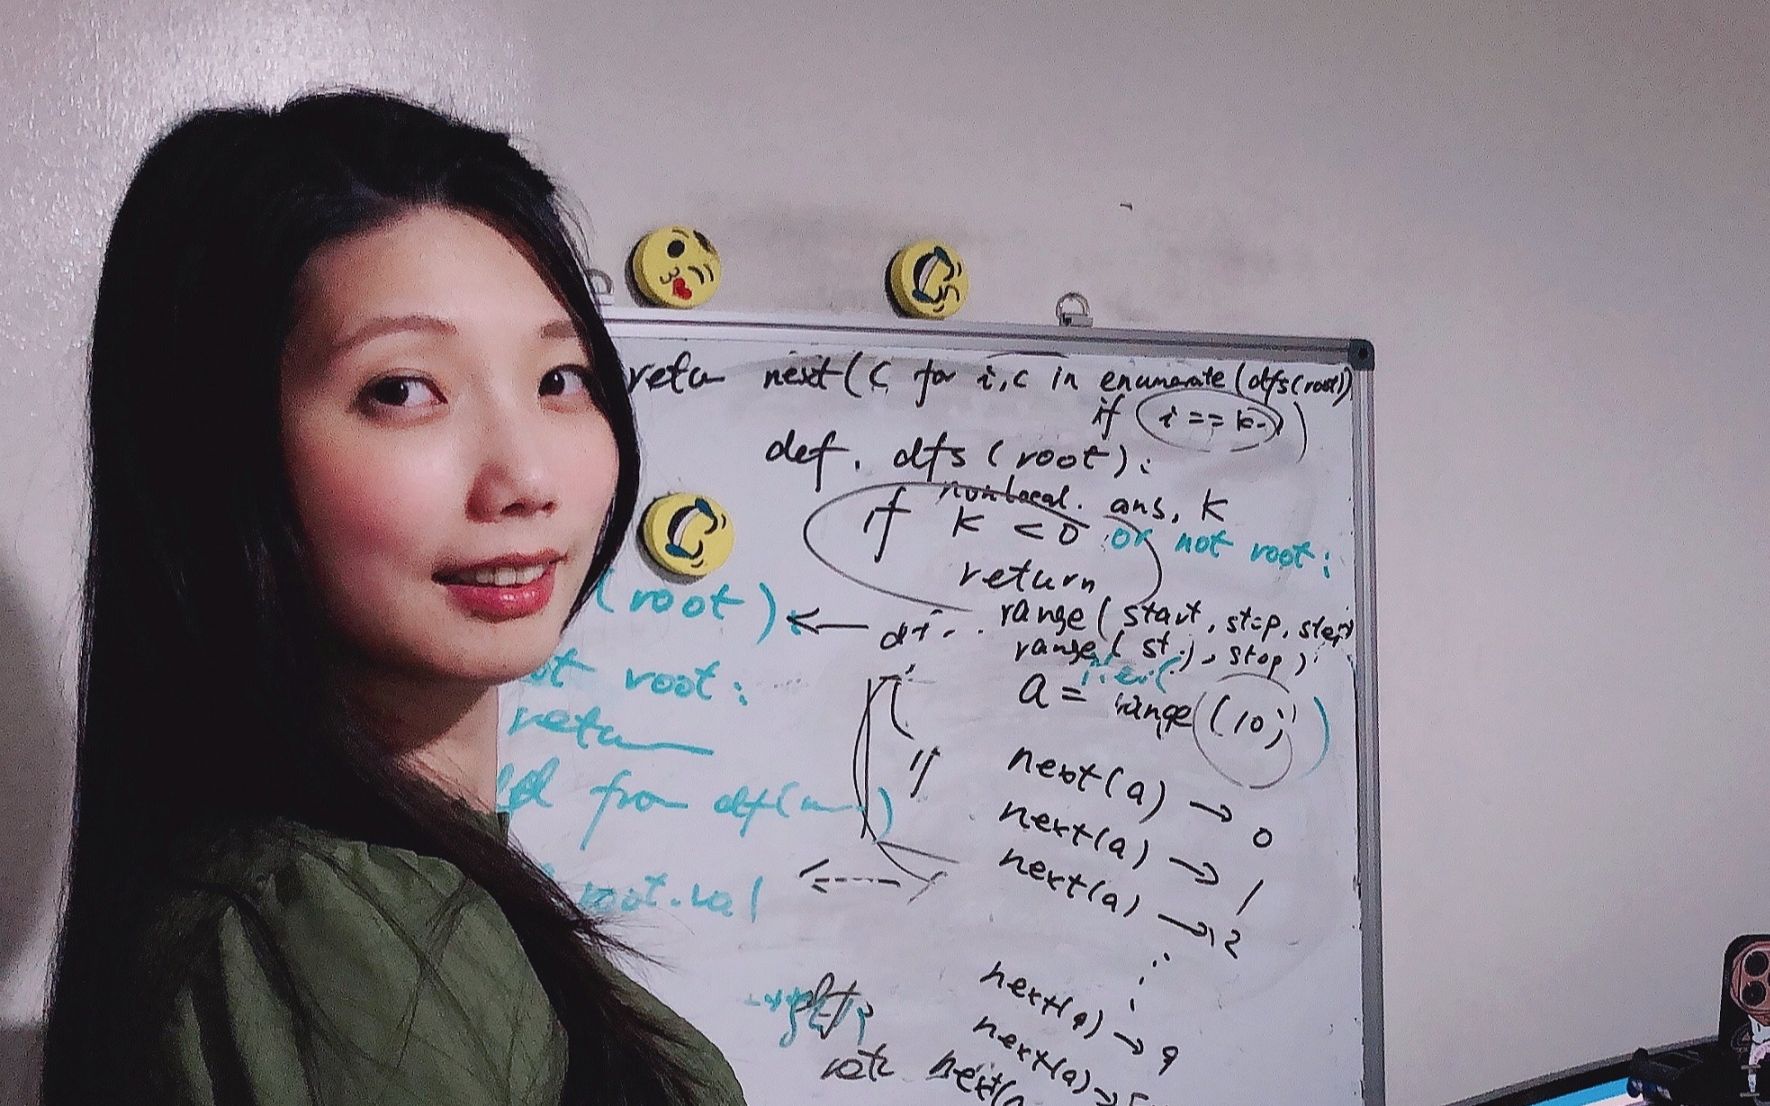 return next(c for i,c in enumerate(dfs(root))
if i == k-1)
def. dfs(root):
nonlocal. ans, k
if k < 0 or not root:
return
(root):
range(start, stop, step)
range( st.), stop)
not root:
a = iter(range(10))
return
if
next(a) → 0
from dfs(
next(a) → 1
next(a) → 2
root.val
next(a) → 9
next(a) →
next(a